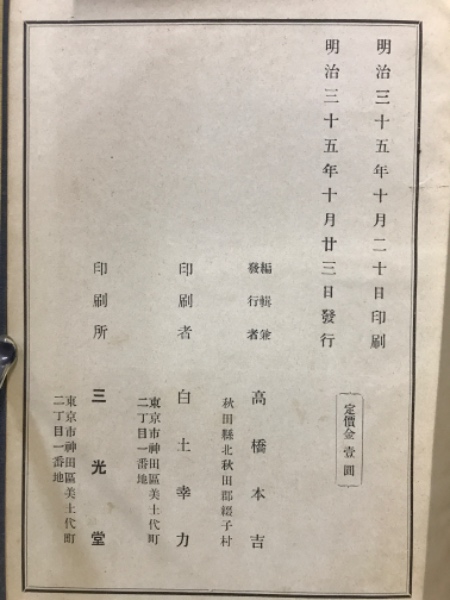 明治三十五年十月二十日印刷
明治三十五年十月廿三日發行
定價金壹圓
編輯兼
發行者
高橋本吉
秋田縣北秋田郡綴子村
印刷者
白土幸力
東京市神田區美土代町
二丁目一番地
印刷所
三光堂
東京市神田區美土代町
二丁目一番地